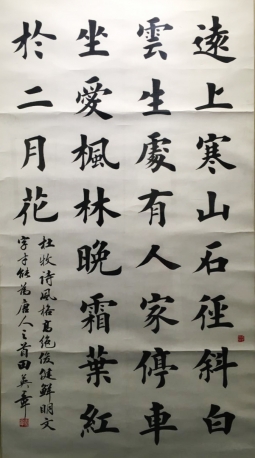 遠上寒山石徑斜白
雲生處有人家停車
坐愛楓林晚霜葉紅
於二月花
杜牧诗風格高绝俊健鮮明文
字才能花唐人之首田英章